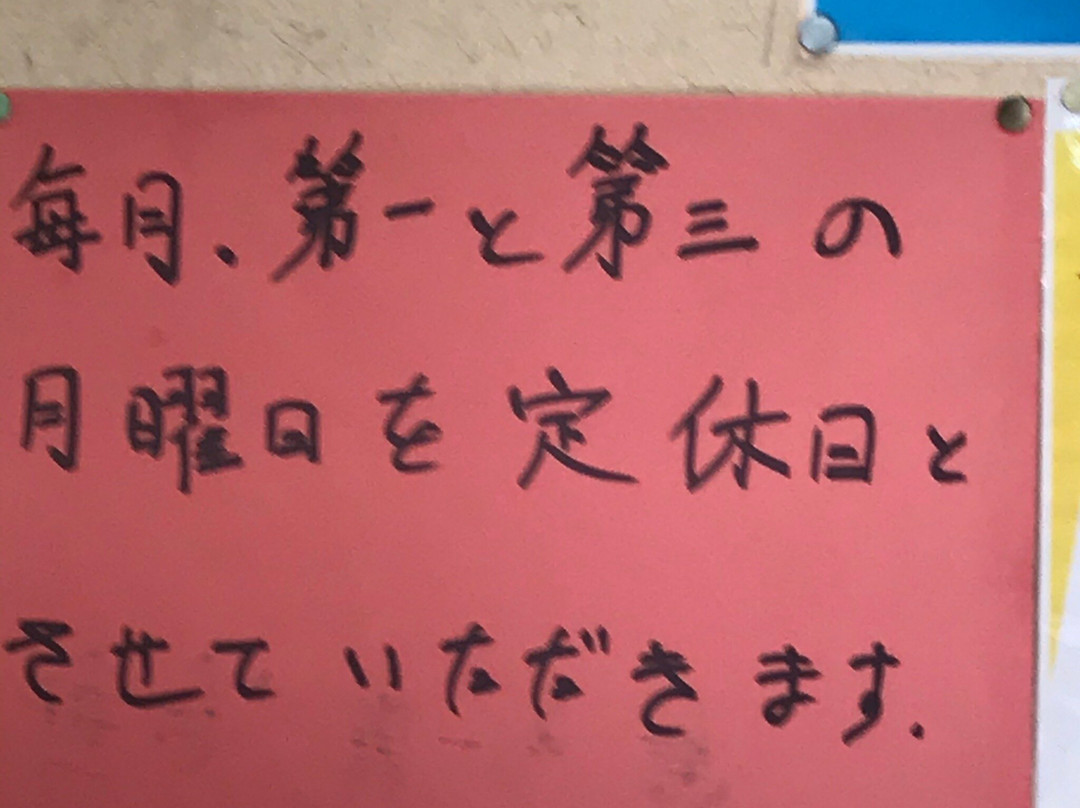 毎月、第一と第三の
月曜日を定休日と
させていただきます.